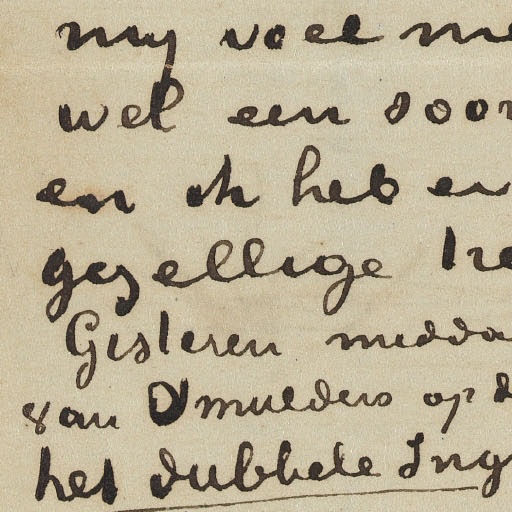 my voel me
wel een soor
en ik heb er
gezellige tre
Gisteren midda
van Dmulders op d
het dubbele Ing